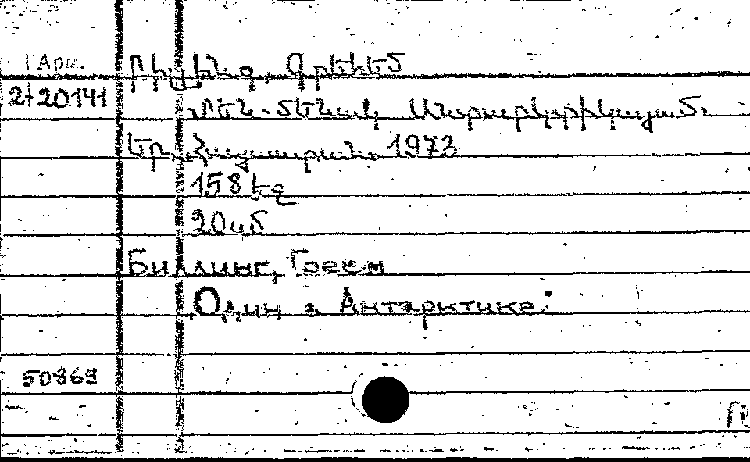 1 Арм.
Բիլլինգ, Գրեեմ
2/20141
Մեն-մենակ Անտարկտիկայում.
Եր., Հայաստան. 1973
158 եզ
20սմ
Биллинг, Грехем
Один в Антарктике.
50869